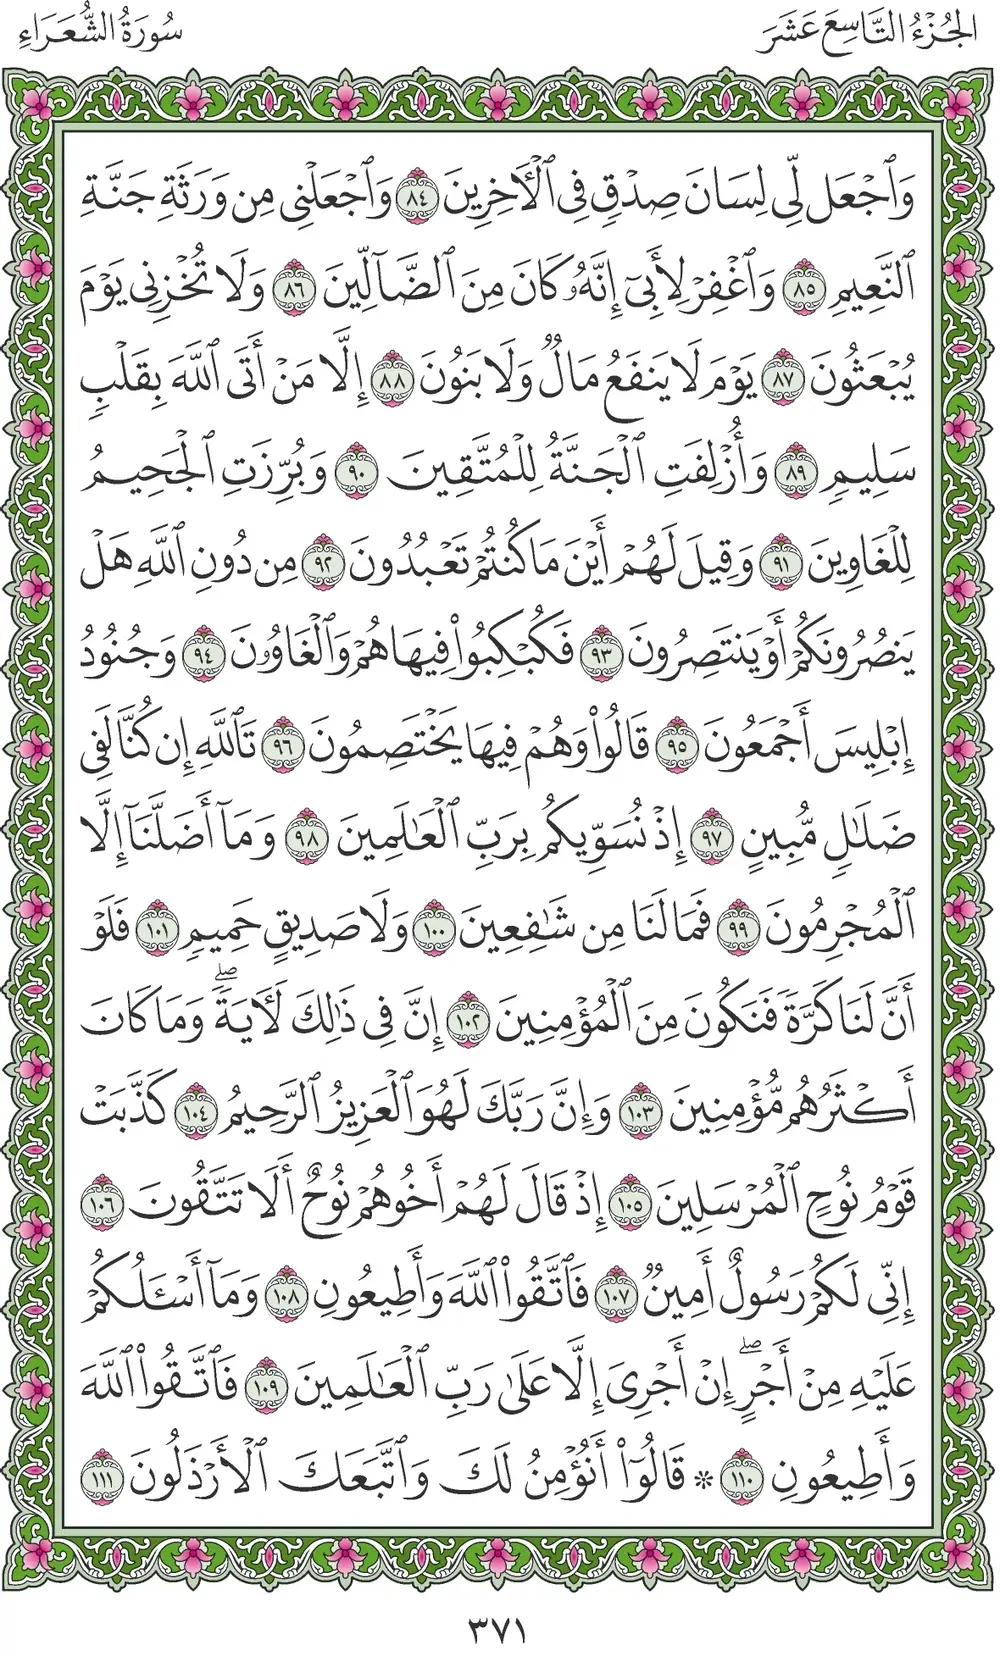 الجُزْءُ التَّاسِعَ عَشَرَ
سُورَةُ الشُّعَرَاءِ
وَٱجْعَل لِّي لِسَانَ صِدْقٍ فِي ٱلْأٓخِرِينَ ٨٤ وَٱجْعَلْنِي مِن وَرَثَةِ جَنَّةِ
ٱلنَّعِيمِ ٨٥ وَٱغْفِرْ لِأَبِيٓ إِنَّهُۥ كَانَ مِنَ ٱلضَّآلِّينَ ٨٦ وَلَا تُخْزِنِي يَوْمَ
يُبْعَثُونَ ٨٧ يَوْمَ لَا يَنفَعُ مَالٌ وَلَا بَنُونَ ٨٨ إِلَّا مَنْ أَتَى ٱللَّهَ بِقَلْبٍ
سَلِيمٍ ٨٩ وَأُزْلِفَتِ ٱلْجَنَّةُ لِلْمُتَّقِينَ ٩٠ وَبُرِّزَتِ ٱلْجَحِيمُ
لِلْغَاوِينَ ٩١ وَقِيلَ لَهُمْ أَيْنَ مَا كُنتُمْ تَعْبُدُونَ ٩٢ مِن دُونِ ٱللَّهِ هَلْ
يَنصُرُونَكُمْ أَوْ يَنتَصِرُونَ ٩٣ فَكُبْكِبُوا۟ فِيهَا هُمْ وَٱلْغَاوُۥنَ ٩٤ وَجُنُودُ
إِبْلِيسَ أَجْمَعُونَ ٩٥ قَالُوا۟ وَهُمْ فِيهَا يَخْتَصِمُونَ ٩٦ تَٱللَّهِ إِن كُنَّا لَفِي
ضَلَٰلٍ مُّبِينٍ ٩٧ إِذْ نُسَوِّيكُم بِرَبِّ ٱلْعَٰلَمِينَ ٩٨ وَمَآ أَضَلَّنَآ إِلَّا
ٱلْمُجْرِمُونَ ٩٩ فَمَا لَنَا مِن شَٰفِعِينَ ١٠٠ وَلَا صَدِيقٍ حَمِيمٍ ١٠١ فَلَوْ
أَنَّ لَنَا كَرَّةً فَنَكُونَ مِنَ ٱلْمُؤْمِنِينَ ١٠٢ إِنَّ فِي ذَٰلِكَ لَأٓيَةً ۖ وَمَا كَانَ
أَكْثَرُهُم مُّؤْمِنِينَ ١٠٣ وَإِنَّ رَبَّكَ لَهُوَ ٱلْعَزِيزُ ٱلرَّحِيمُ ١٠٤ كَذَّبَتْ
قَوْمُ نُوحٍ ٱلْمُرْسَلِينَ ١٠٥ إِذْ قَالَ لَهُمْ أَخُوهُمْ نُوحٌ أَلَا تَتَّقُونَ ١٠٦
إِنِّي لَكُمْ رَسُولٌ أَمِينٌ ١٠٧ فَٱتَّقُوا۟ ٱللَّهَ وَأَطِيعُونِ ١٠٨ وَمَآ أَسْـَٔلُكُمْ
عَلَيْهِ مِنْ أَجْرٍ ۖ إِنْ أَجْرِيَ إِلَّا عَلَىٰ رَبِّ ٱلْعَٰلَمِينَ ١٠٩ فَٱتَّقُوا۟ ٱللَّهَ
وَأَطِيعُونِ ١١٠ ۞ قَالُوٓا۟ أَنُؤْمِنُ لَكَ وَٱتَّبَعَكَ ٱلْأَرْذَلُونَ ١١١
٣٧١